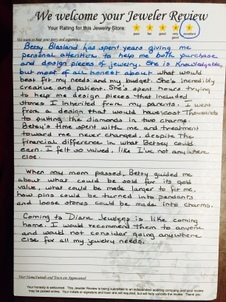 We welcome your Jeweler Review
Your Rating for this Jewelry Store:
Betsy Blasland has spent years giving me
personal attention to help me both purchase
and design pieces of jewelry. She is knowledgeable,
but most of all honest about what would
best fit my needs and my budget. She's incredibly
creative and patient. She's spent hours trying
to help me design pieces that included
stones I inherited from my parents. I went
from a design that would have cost thousands
to putting the diamonds in two charms.
Betsy's time spent with me and treatment
toward me never changed despite the
financial difference in what Betsey could
earn. I felt so valued, like I've not anywhere
else.
When my mom passed, Betsy guided me
about what could be sold for its gold
value, what could be made larger to fit me,
how pins could be turned into pendants
and loose stones could be made into charms.
Coming to Diane Jewelers is like coming
home. I would recommend them to anyone
and would not consider going anywhere
else for all my jewelry needs.